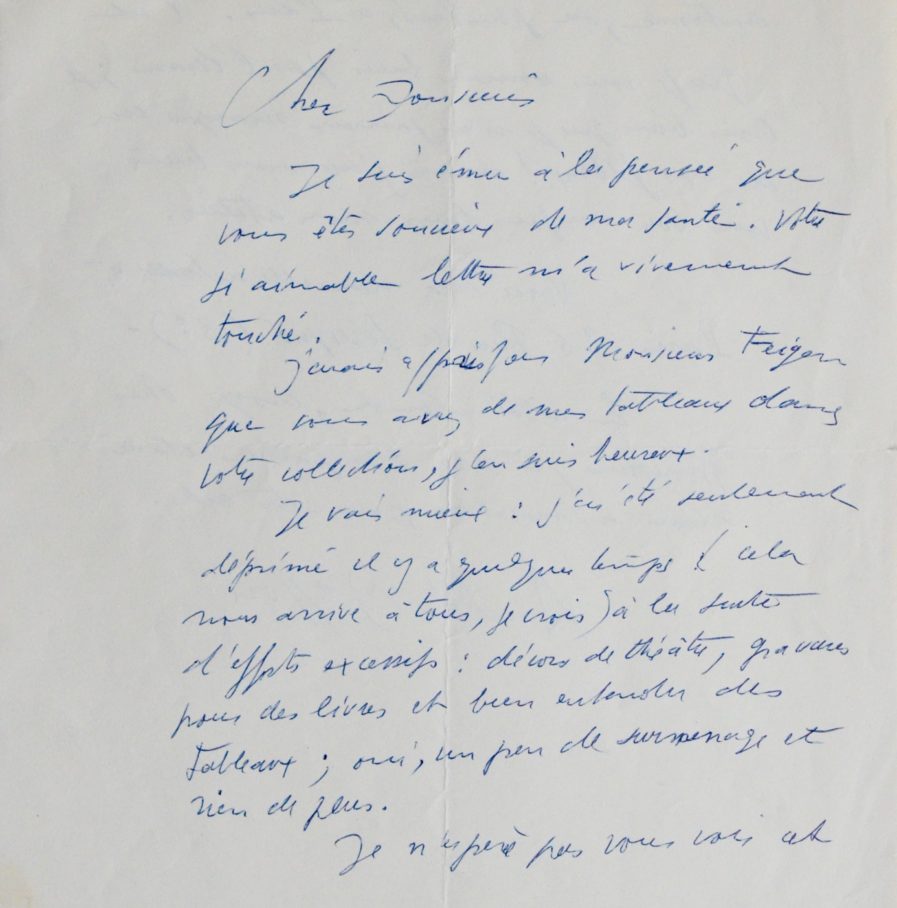 Cher Monsieur
Je suis ému à la pensée que
vous êtes soucieux de ma santé. Votre
si aimable lettre m'a vivement
touché.
J'avais appris par Monsieur Feigen
que vous avez de mes tableaux dans
votre collection, j'en suis heureux.
Je vais mieux : j'ai été seulement
déprimé il y a quelques temps ( cela
nous arrive à tous, je crois) à la suite
d'efforts excessifs : décors de théâtre, gravures
pour des livres et bien entendu des
tableaux ; oui, un peu de surmenage et
rien de plus.
Je n'espère pas vous voir cet